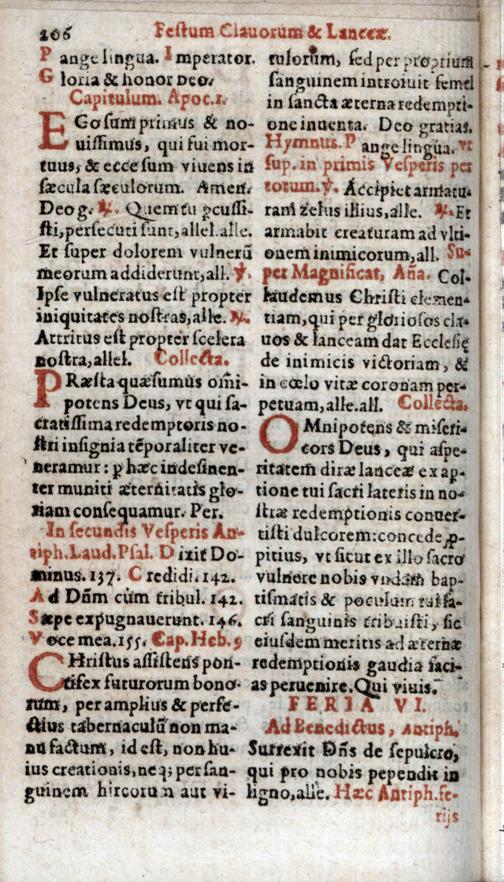 206 Festum Clauorum & Lanceæ.
P ange lingua. I mperator.
G loria & honor Deo.
Capitulum. Apoc.1.
EGo sum primus & no-
uissimus, qui fui mor-
tuus, & ecce sum viuens in
sæcula sæculorum. Amen.
Deo g. ℟. Quem tu ꝑcussi-
sti, persecuti sunt, allel. alle.
Et super dolorem vulnerū
meorum addiderunt, all. ℣.
Ipse vulneratus est propter
iniquitates nostras, alle. ℟.
Attritus est propter scelera
nostra, allel. Collecta.
PRæsta quæsumus om̄i-
potens Deus, vt qui sa-
cratissima redemptoris no-
stri insignia tēporaliter ve-
neramur: ꝑ hæc indesinen-
ter muniti æternitatis glo-
riam consequamur. Per.
In secundis Vesperis An-
tiph. Laud. Psal. D ixit Do-
minus. 137. C redidi. 142.
A d Dn̄m cùm tribul. 142.
S æpe expugnauerunt. 146.
V oce mea. 155. Cap. Heb. 9
CHristus assistens pon-
tifex futurorum bono-
rum, per amplius & perfe-
ctius tabernaculū non ma-
nu factum, id est, non hu-
ius creationis, neq; per san-
guinem hircorum aut vi-
tulorum, sed per proprium
sanguinem introiuit semel
in sancta æterna redempti-
one inuenta. Deo gratias.
Hymnus. P ange lingua. vt
sup. in primis Vesperis per
totum. ℣. Accipiet armatu-
ram zelus illius, alle. ℟. Et
armabit creaturam ad vlti-
onem inimicorum, all. Su-
per Magnificat, Aña. Col-
laudemus Christi clemen-
tiam, qui per gloriosos cla-
uos & lanceam dat Ecclesię
de inimicis victoriam, &
in cœlo vitæ coronam per-
petuam, alle. all. Collecta.
OMnipotens & miseri-
cors Deus, qui aspe-
ritatem diræ lanceæ ex ap-
tione tui sacri lateris in no-
stræ redemptionis conuer-
tisti dulcorem: concede ꝓ-
pitius, vt sicut ex illo sacro
vulnere nobis vndam bap-
tismatis & poculum tui sa-
cri sanguinis tribuisti, sic
eiusdem meritis ad æternæ
redemptionis gaudia faci-
as peruenire. Qui viuis.
FERIA VI.
Ad Benedictus, Antiph.
Surrexit Dn̄s de sepulcro,
qui pro nobis pependit in
ligno, alle. Hæc Antiph. fe-
rijs